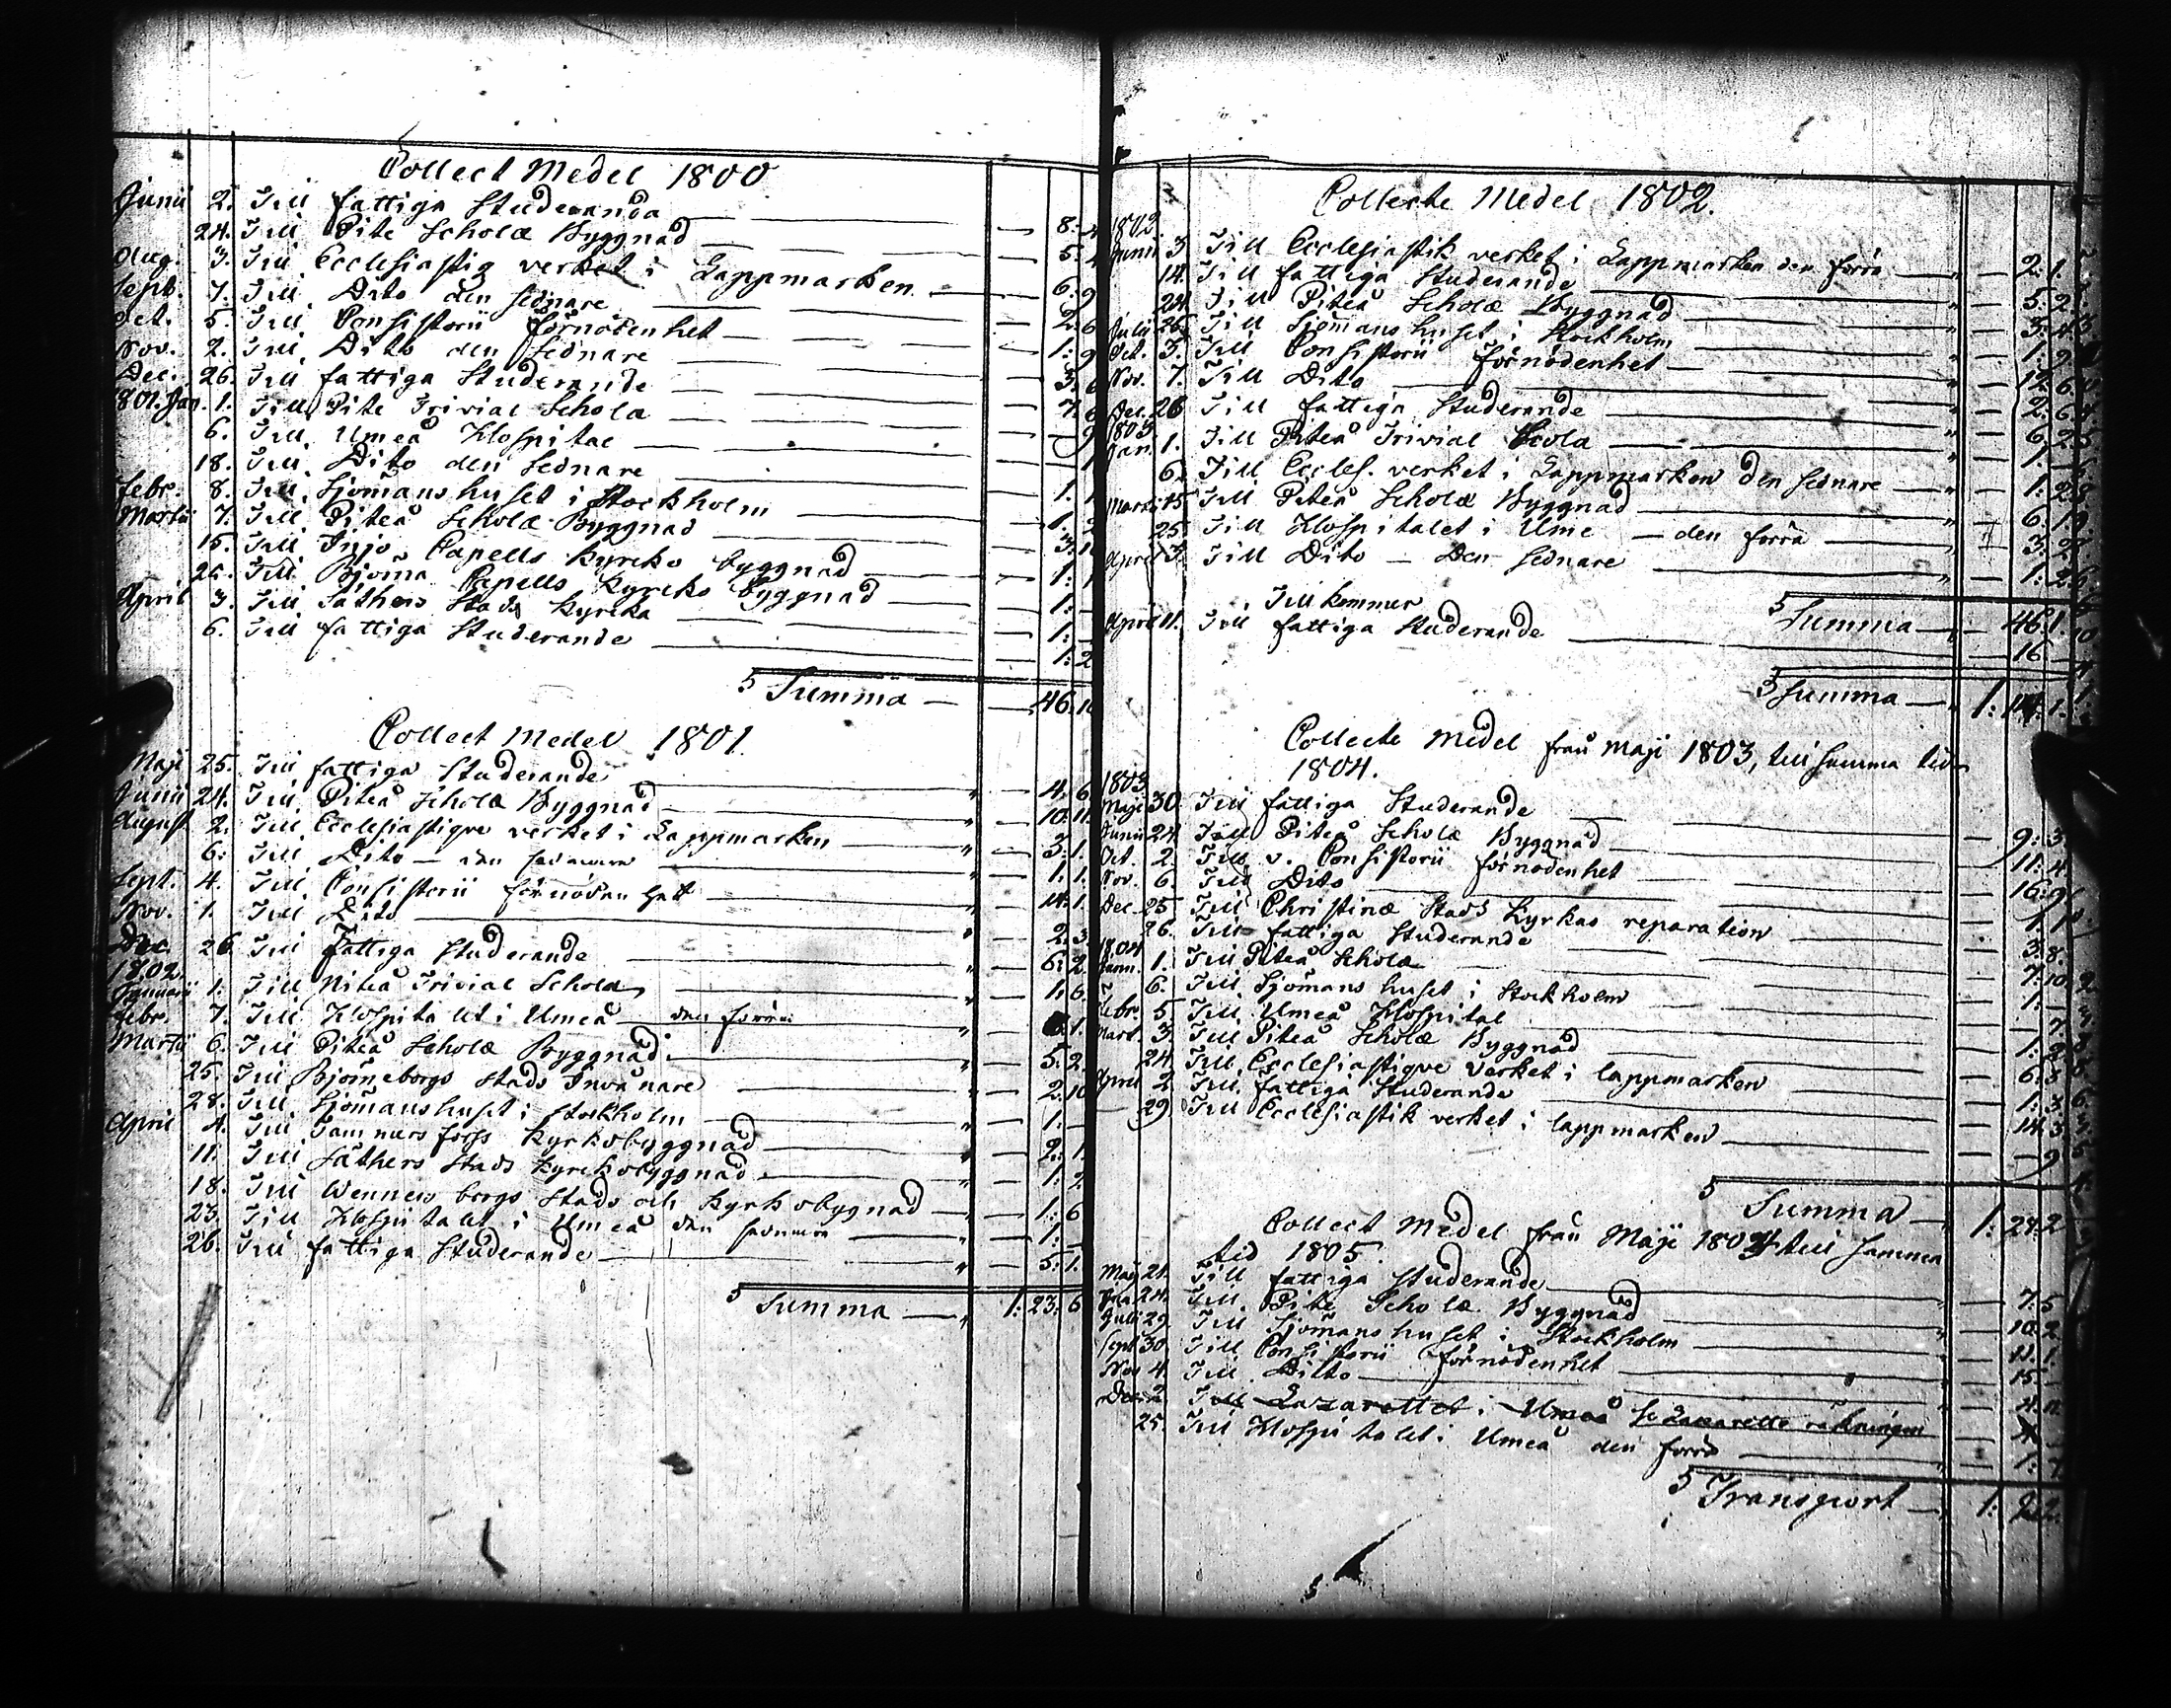 Collect Medel 1800
Junii 2. Till fattiga Studeranda — 8.
24. Till Pite Scholæ Byggnad — 5.
Aug. 3. Till Ecclesiastiq verket i Lappmarken — 6. 9
Sept. 7. Till Dito den sednare — 2. 6
Oct. 5. Till Consistorii förnödenhet — 1. 9
Nov. 2. Till Dito den sednare — 3.
Dec. 26. Till fattiga Studerande — 7. 6
1801. Jan. 1. Till Pite Trivial Schola — 9
6. Till Umeå Hospital
18. Till Dito den sednare — 1.
Febr. 8. Till Sjömanshuset i Stockholm — 1.
Martii 7. Till Piteå Scholæ Byggnad — 3.
15. Till Capells Kyrcko byggnad — 1:
Till Capells Kyrcko byggnad — 1:
April 3. Till Säthers Stads Kyrcka — 1: —
6. Till fattiga Studerande — 1: 2
Summa — 46.
Collect Medel 1801.
Maji 25. Till fattiga Studerande — 4. 6
Junii 24. Till Piteå Scholæ Byggnad — 10. 11
August 2. Till Ecclesiastique verket i Lappmarken — 3. 1.
6. Till Dito — den sednare — 1. 1.
Sept. 4. Till Consistorii förnödenhet — 14. 1.
Nov. 1. Till Dito — 2. 3.
Dec. 26 Till Fattiga Studerande — 6. 2
1802.
Januarii 1. Till Piteå Trivial Schola — 1. 6.
Febr. 7. Till Hospitalet i Umeå den förra — 1.
Martii 6. Till Piteå Scholæ Byggnad — 5. 2
25. Till Björneborgs Stads Invånare — 2. 10
28. Till Sjömanshuset i Stockholm — 1. —
April 4. Till Tammersforss Kyrkobyggnad — 2. 1.
11. Till Säthers Stads Kyrckobyggnad — 1. 2
18. Till Wennersborgs Stads och Kyrkobyggnad — 1. 6
23. Till Hospitalet i Umeå den sednare — 1. —
26. Till fattiga Studerande — 5. 1.
Summa — 1. 23. 6
Collecte Medel 1802.
1802
Junii 3 Till Ecclesiastik verket i Lappmarken den förra — 2. 1.
14. Till fattiga Studerande — 5. 2.
24 Till Piteå Scholæ Byggnad — 3.
Julii 25 Till Sjömanshuset i Stockholm — 1. 2
Oct. 3. Till Consistorii förnödenhet — 12. 6
Nov. 7. Till Dito — 2. 6
Dec. 26 Till fattiga Studerande — 6. 2
1803
Jan. 1. Till Piteå Trivial Scola — 1. —
6. Till Eccles. verket i Lappmarken den sednare — 1. 2
Martii 15 Till Piteå Scholæ Byggnad — 6. 10
25. Till Hospitalet i Ume — den förra — 3. 2.
April 3. Till Dito — Den sednare — 1. 2
Summa — 46. 1.
Tillkommer
April 11. Till fattiga Studerande — 16
Summa — 1: 14. 1.
Collecte Medel från Maji 1803, till samma tid
1804.
1803
Maji 30. Till fattiga Studerande — 9. 3
Junii 24 Till Piteå Scholæ Byggnad — 11. 4
Oct. 2. Till v. Consistorii förnödenhet — 16. 9
Nov. 6. Till Dito — 1. 1
Dec. 25 Till Christinæ Stads Kyrkas reparation — 3. 8.
26. Till fattiga Studerande — 7. 10
1804
Janu. 1. Till Piteå Schola — 1. —
6. Till Sjömans huset i Stockholm — 7.
Febr. 5. Till Umeå Hospital — 1. 2
Mart. 3. Till Piteå Scholæ Byggnad — 6. 3
24. Till Ecclesiastique Verket i lappmarken — 1. 3.
April 2. Till fattiga Studerande — 14. 3
29. Till Ecclesiastik verket i lappmarken — 9
Summa — 1: 24. 2
Collect Medel från Maji 1804 till samma
tid 1805.
Maji 21. Till fattiga Studerande — 7. 5
Jun 24. Till Pite Scholæ Byggnad — 10. 2
Julii 29 Till Sjömanshuset i Stockholm — 1.
Sept 30. Till Consistorii förnödenhet — 15.
Nov 4. Till Ditto — 4. 11
Dec. 2 Till Lazarettet i Umeå se Lazaretts räkningen
25. Till Hospitalet i Umeå den förra — 1.
Transport — 1: